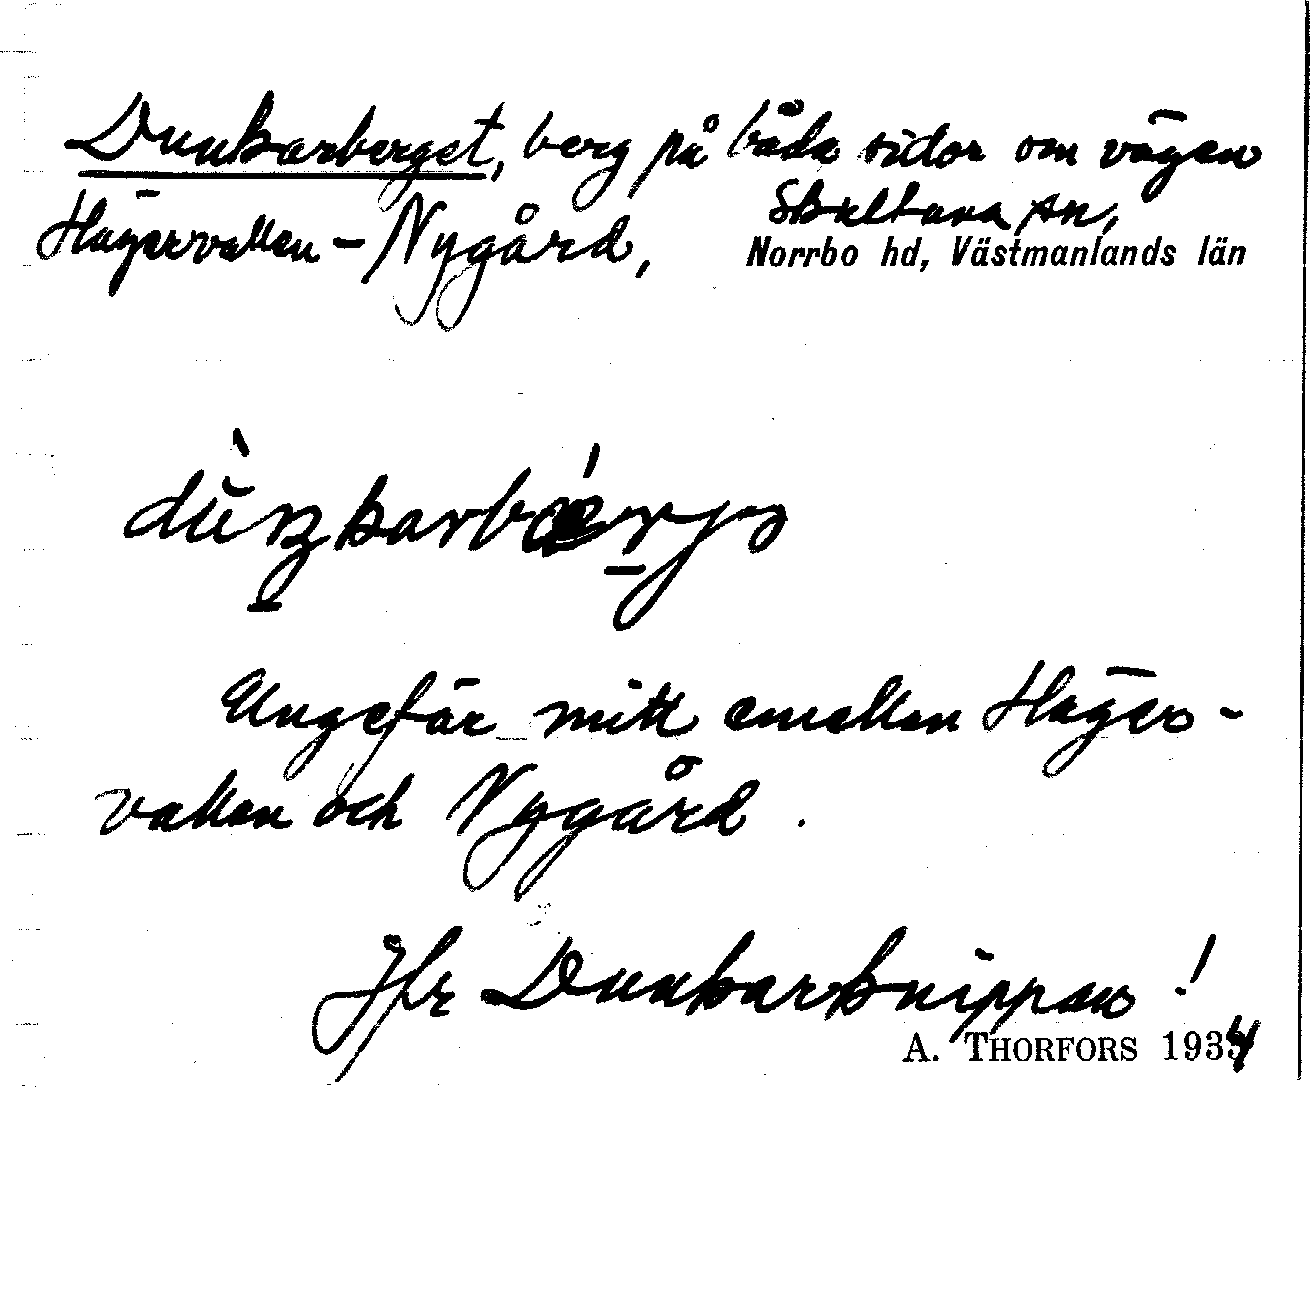 Dunkarberget, berg på båda sidor om vägen
Hägervallen – Nygård, Skultuna sn,
Norrbo hd, Västmanlands län
Ungefär mitt emellan Häger-
vallen och Nygård.
Jfr Dunkarknippen!
A. THORFORS 1934